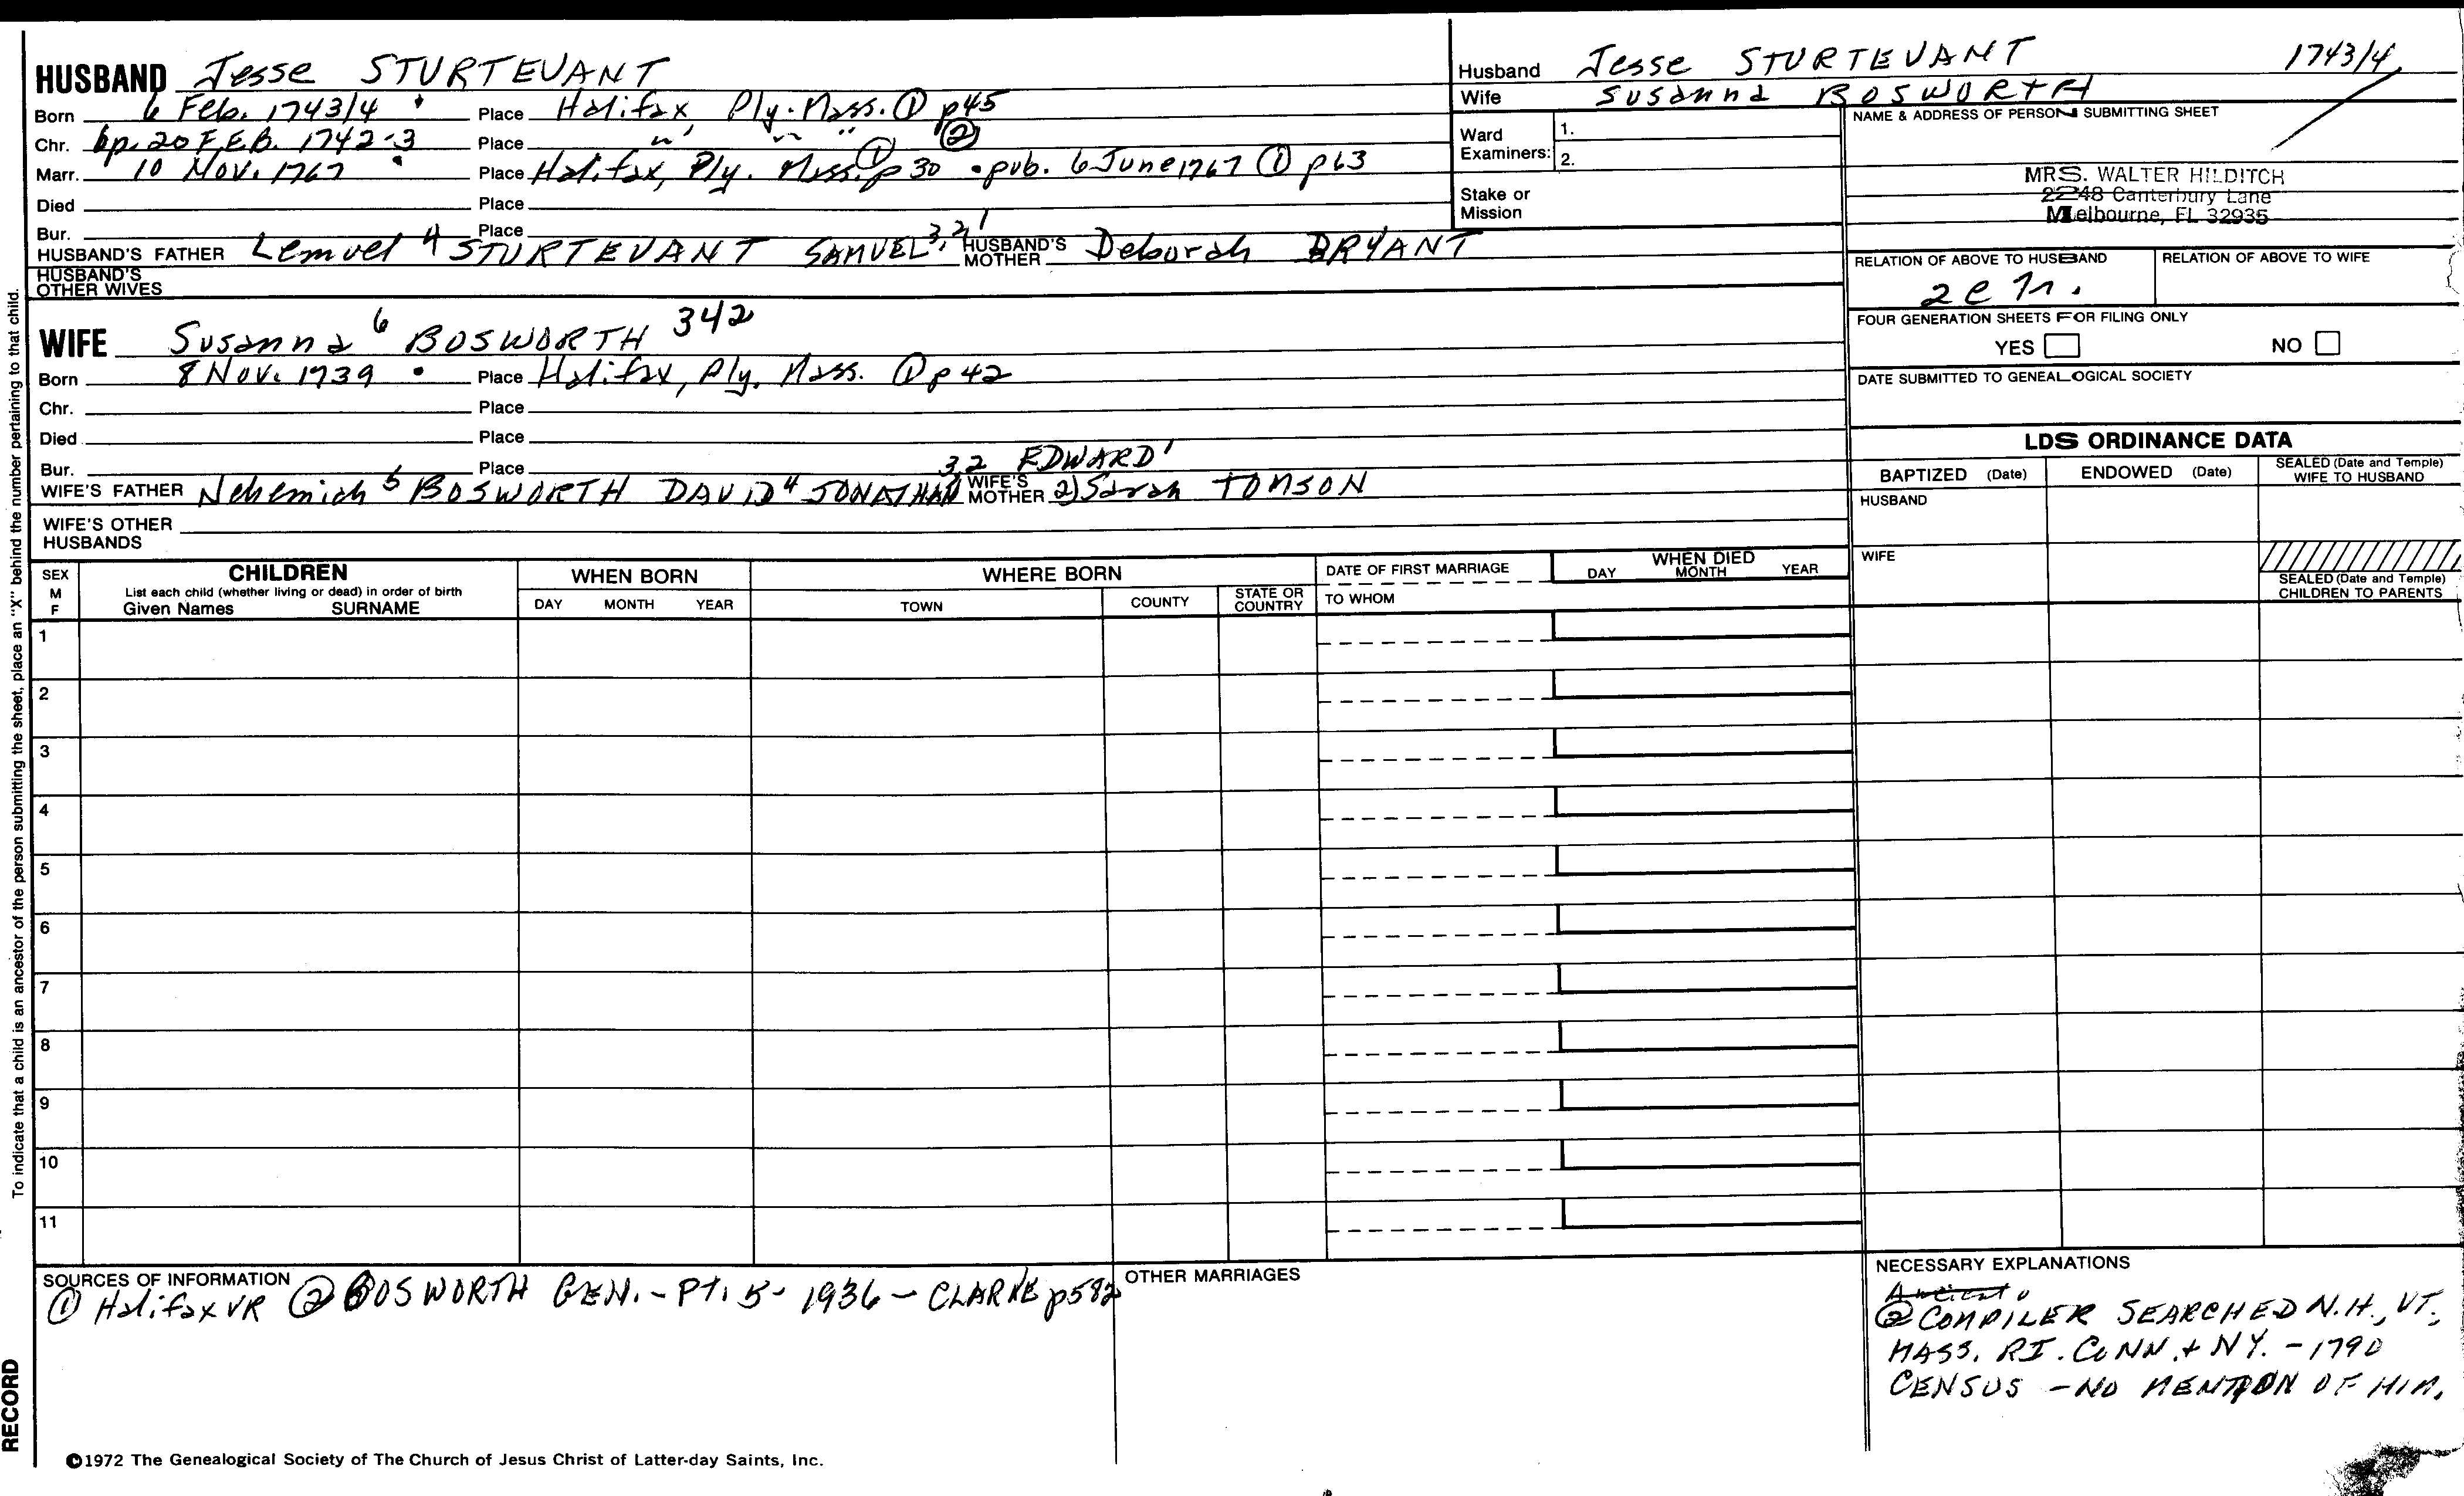 HUSBAND Jesse STURTEVANT
Born 6 Feb. 1743/4 Place Halifax Ply. Mass. ① p45
Chr. bp. 20 FEB. 1742-3 Place " " " ②
Marr. 10 Nov. 1767 Place Halifax, Ply. Mass. ① p 30 • pub. 6 June 1767 ① p63
Died Place
Bur. Place
HUSBAND'S FATHER Lemuel 4 STURTEVANT SAMUEL 3,2,1 HUSBAND'S MOTHER Deborah BRYANT
HUSBAND'S OTHER WIVES
WIFE Susanna 6 BOSWORTH 342
Born 8 Nov. 1739 Place Halifax, Ply. Mass. ① p 42
Chr. Place
Died Place
Bur. Place
WIFE'S FATHER Nehemiah 5 BOSWORTH DAVID 4 JONATHAN 3,2 EDWARD 1 WIFE'S MOTHER 2) Sarah TOMSON
WIFE'S OTHER HUSBANDS
Husband Jesse STURTEVANT 1743/4
Wife Susanna BOSWORTH
Ward Examiners: 1.
2.
Stake or Mission
NAME & ADDRESS OF PERSON SUBMITTING SHEET
MRS. WALTER HILDITCH
2248 Canterbury Lane
Melbourne, FL 32935
RELATION OF ABOVE TO HUSBAND RELATION OF ABOVE TO WIFE
FOUR GENERATION SHEETS FOR FILING ONLY
YES NO
DATE SUBMITTED TO GENEALOGICAL SOCIETY
LDS ORDINANCE DATA
BAPTIZED (Date) ENDOWED (Date) SEALED (Date and Temple) WIFE TO HUSBAND
HUSBAND
WIFE
SEALED (Date and Temple) CHILDREN TO PARENTS
SEX M F
CHILDREN
List each child (whether living or dead) in order of birth
Given Names SURNAME
WHEN BORN
DAY MONTH YEAR
WHERE BORN
TOWN COUNTY STATE OR COUNTRY
DATE OF FIRST MARRIAGE
TO WHOM
WHEN DIED
DAY MONTH YEAR
1
2
3
4
5
6
7
8
9
10
11
SOURCES OF INFORMATION
① Halifax VR ② BOSWORTH GEN. - Pt. 5 - 1936 - CLARKE p582
OTHER MARRIAGES
NECESSARY EXPLANATIONS
② COMPILER SEARCHED N.H., VT,
MASS, RI. CONN. + NY. - 1790
CENSUS - NO MENTION OF HIM.
To indicate that a child is an ancestor of the person submitting the sheet, place an "X" behind the number pertaining to that child.
RECORD
©1972 The Genealogical Society of The Church of Jesus Christ of Latter-day Saints, Inc.